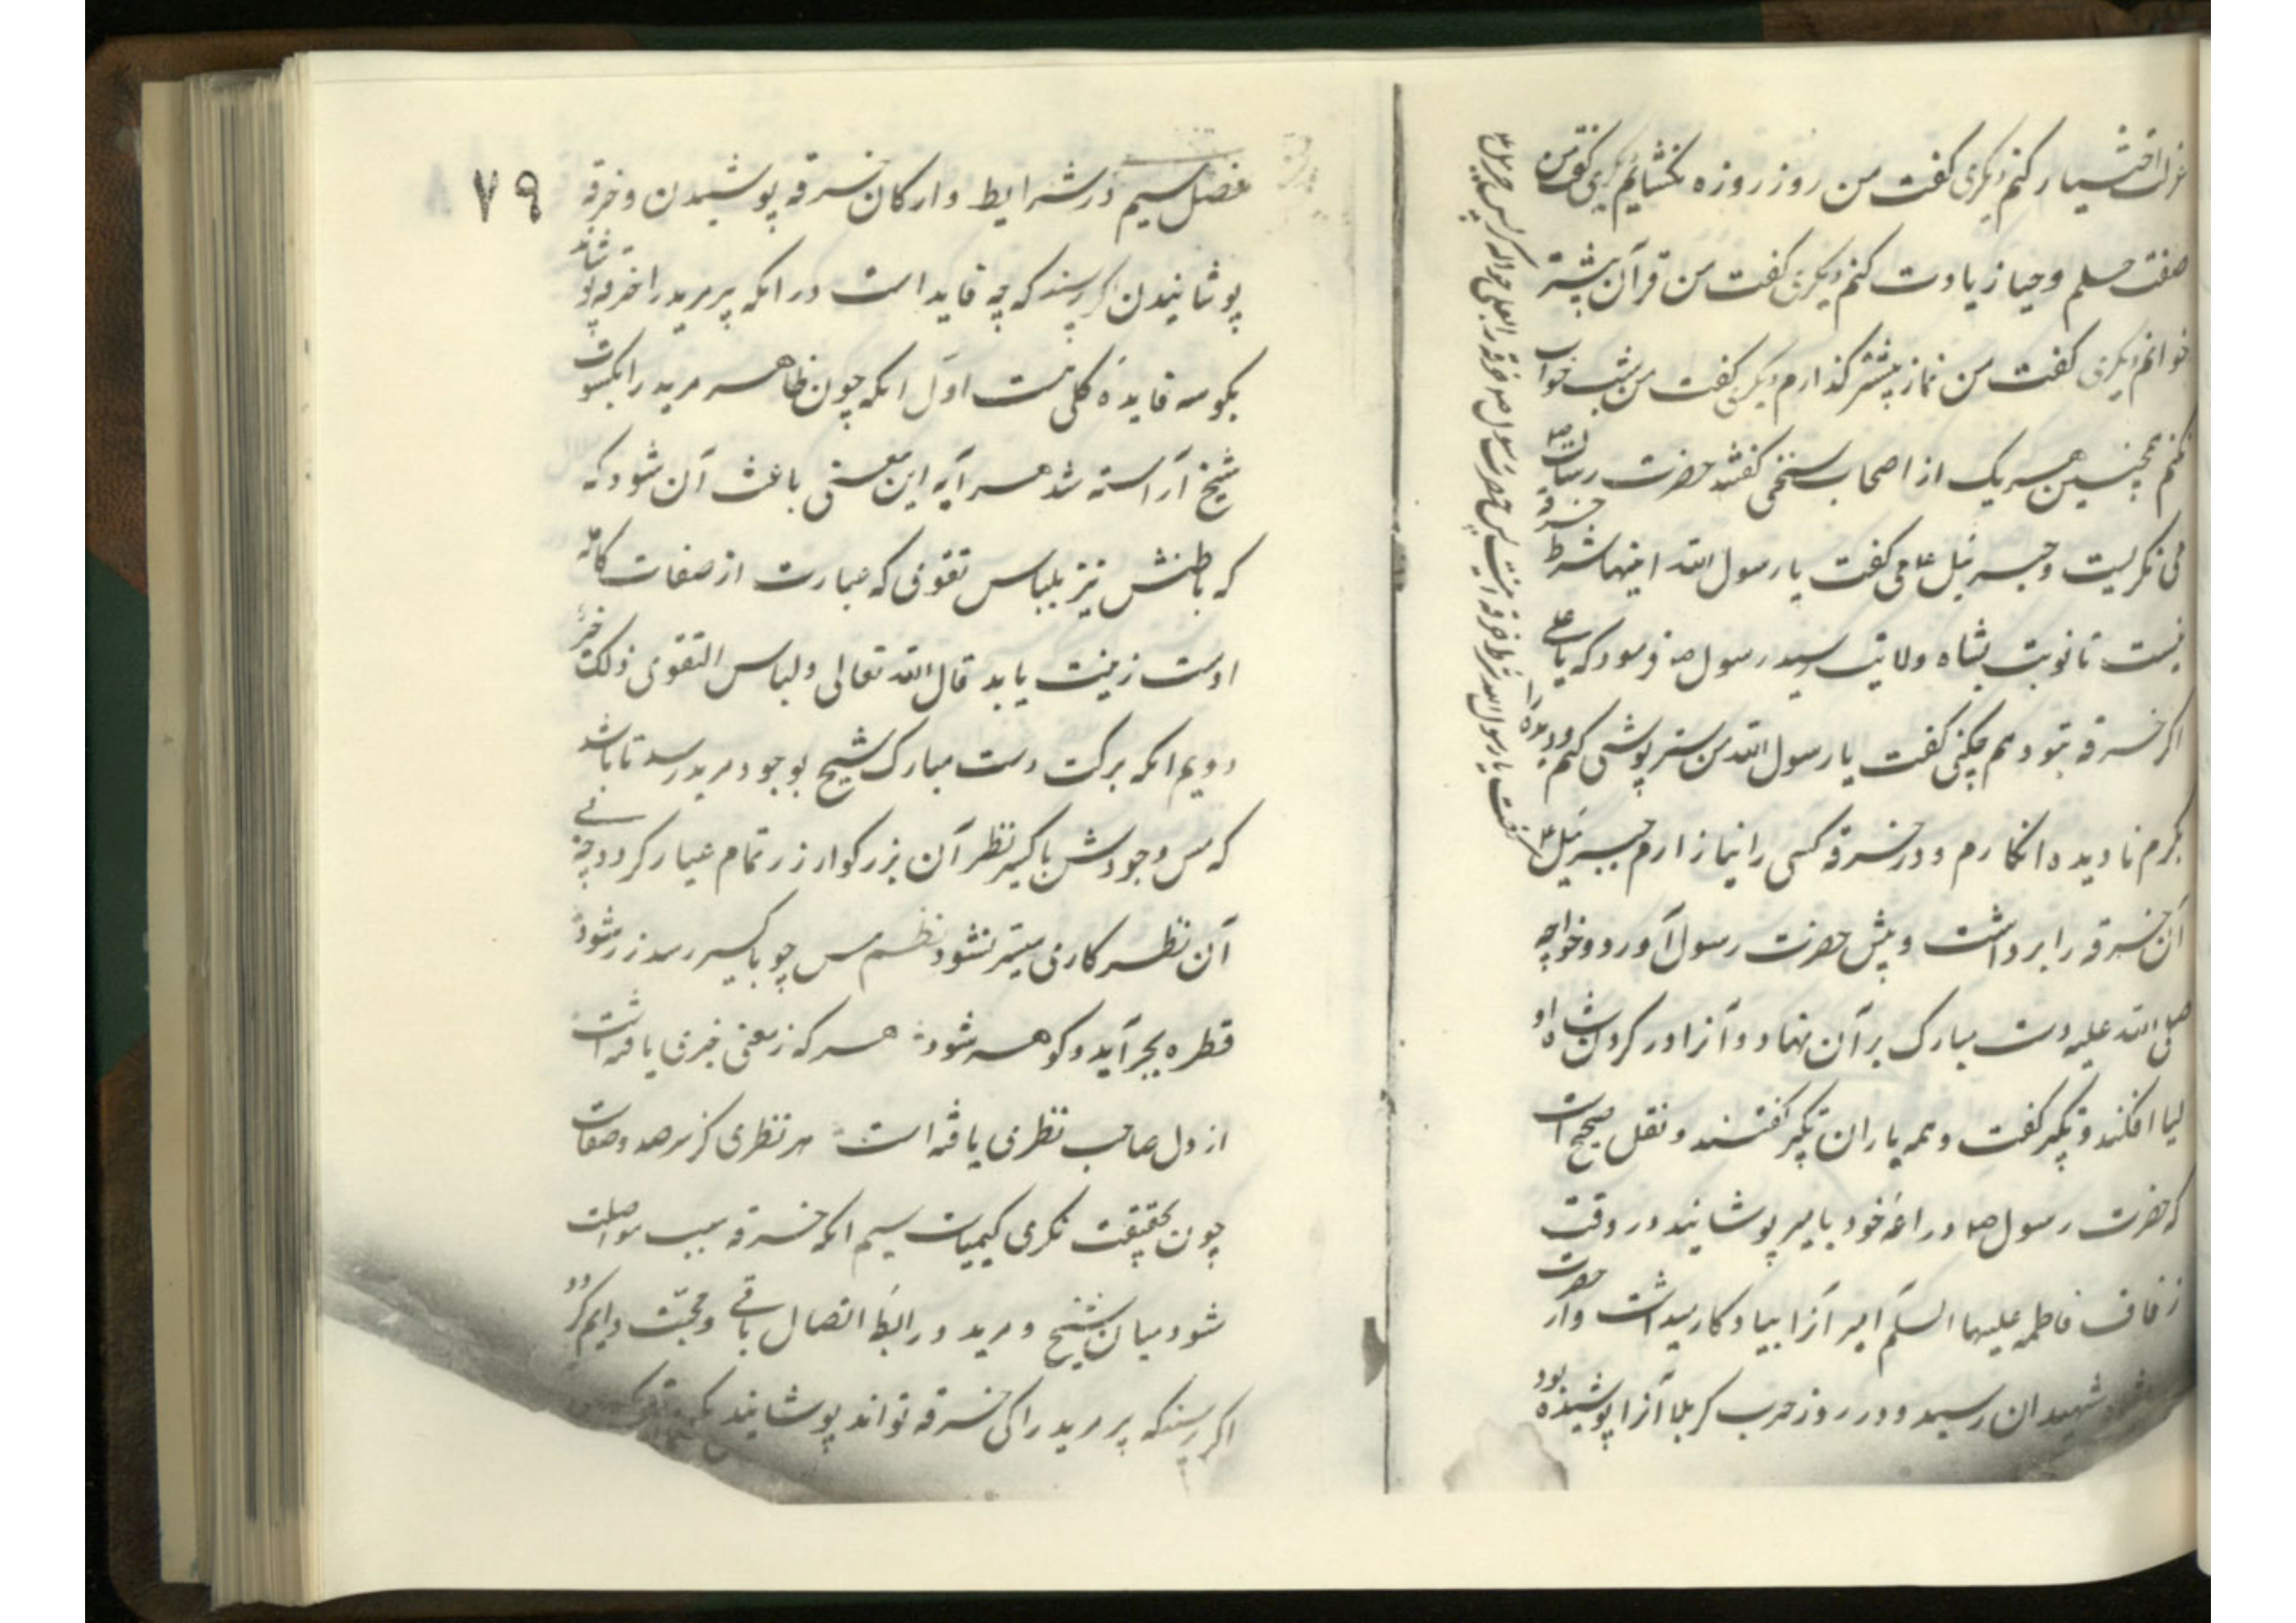 عزلت اختیار کنم دیگری گفت من روز روزه نگشایم دیگری گفت من
صفت حلم و حیا زیادت کنم دیگری گفت من قرآن بیشتر
خوانم دیگری گفت من نماز بیشتر گذارم دیگری گفت من شب خواب
نکنم همچنین هر یک از اصحاب سخنی گفتند حضرت رسالت ص
می نگریست و جبرئیل ع می گفت یا رسول الله اینها شرط خرقه
نیست تا نوبت بشاه ولایت رسید رسول ص فرمود که یا علی
اگر خرقه بتو دهم چکنی گفت یا رسول الله من ستر پوشی کنم و دیده را
بکرم نادیده انکارم و در خرقه کسی را نیازارم جبرئیل ع
آن خرقه را برداشت و پیش حضرت رسول آورد و خواجه
صلی الله علیه دست مبارک بر آن نهاد و آنرا در گردن شاه او
لیا افکند و تکبیر گفت و همه یاران تکبیر گفتند و نقل صحیح است
که حضرت رسول ص دراعه خود با میر پوشانید در وقت
زفاف فاطمه علیها السلم امیر آنرا بیادگار میداشت و از حضرت
شهیدان رسید و در روز حرب کربلا آنرا پوشیده بود
گفت یا رسول الله شرط خرقه اینست پس حضرت رسول ص خرقه را بعلی حواله کرد پس جبرئیل ع
۷۹
فصل سیم در شرایط و ارکان خرقه پوشیدن و خرقه
پوشانیدن اگر پرسند که چه فایده است در انکه پیر مرید را خرقه پوشاند
بگو سه فایدهٔ کلی هست اول انکه چون ظاهر مرید را بکسوت
شیخ آراسته شد هر آیه این معنی باعث آن شود که
که باطنش نیز بلباس تقوی که عبارت از صفات کامله
اوست زینت یابد قال الله تعالی و لباس التقوی ذلک خیر
دویم انکه برکت دست مبارک شیخ بوجود مرید رسد تا باشد
که مس وجودش باکسیر نظر آن بزرگوار زر تمام عیار گردد چه بی
آن نظر کاری میسر نشود نظم مس چو باکسیر رسد زر شود
قطره ببحر آید و گوهر شود هر که ز معنی خبری یافته است
از دل صاحب نظری یافته است هر نظری کز سر صدق و صفاست
چون بحقیقت نگری کیمیاست سیم انکه خرقه سبب مواصلت
شود میان شیخ و مرید و رابطهٔ اتصال باقی و محبت دایم گردد
اگر پرسند که پیر مرید را کی خرقه تواند پوشانید بگو